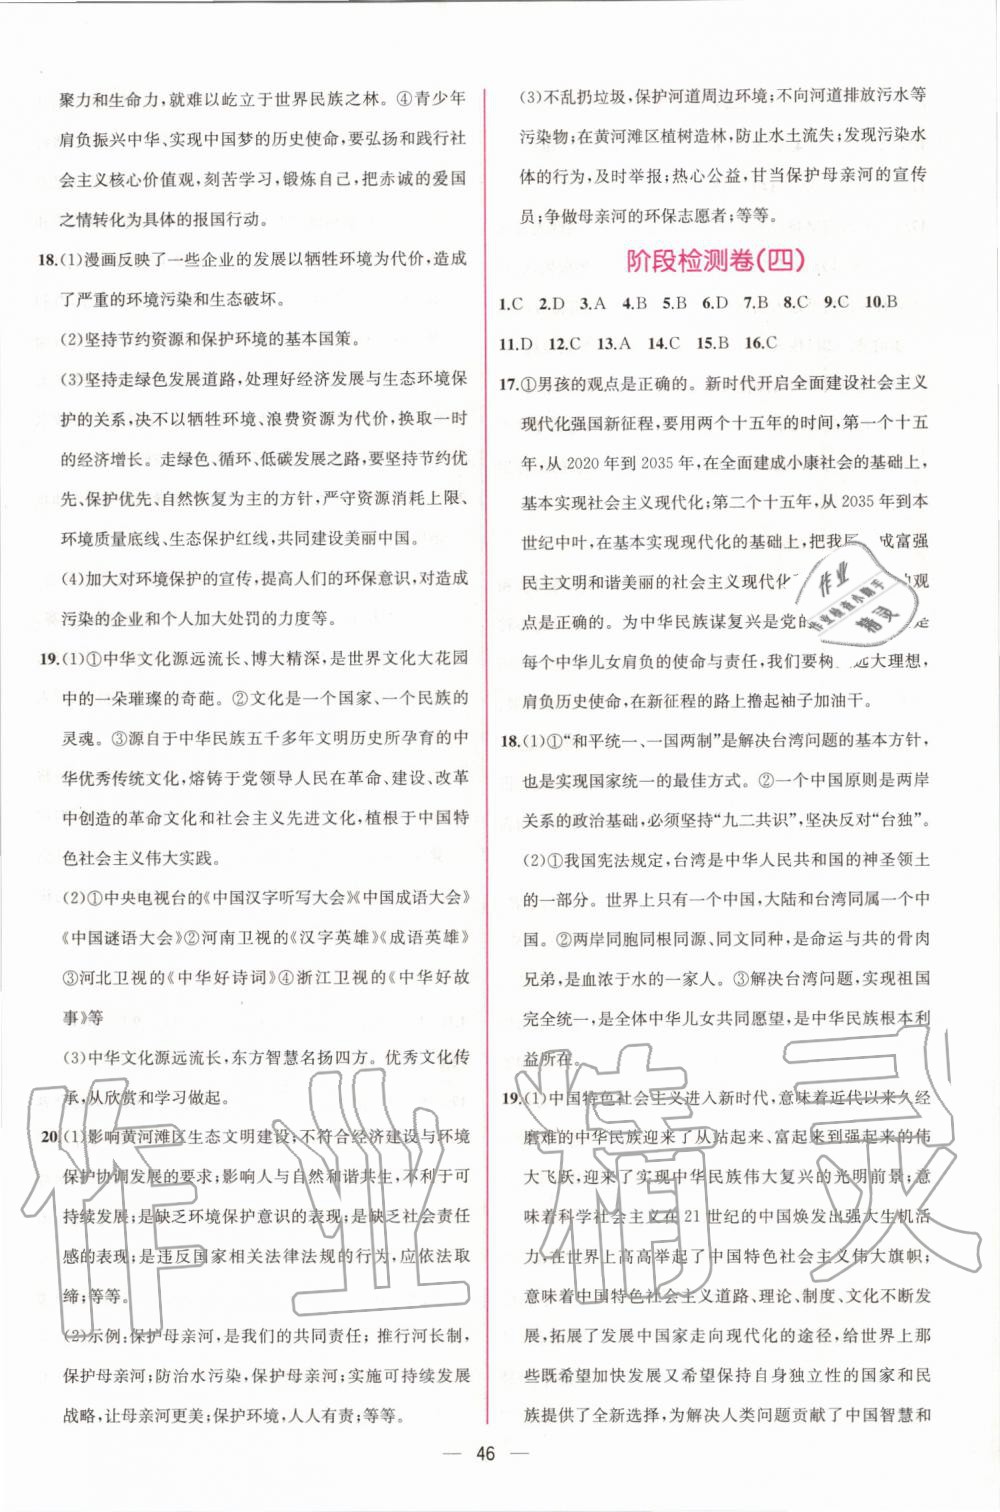 聚力和生命力,就难以屹立于世界民族之林。④青少年
肩负振兴中华、实现中国梦的历史使命,要弘扬和践行社
会主义核心价值观,刻苦学习,锻炼自己,把赤诚的爱国
之情转化为具体的报国行动。
18.(1)漫画反映了一些企业的发展以牺牲环境为代价,造成
了严重的环境污染和生态破坏。
(2)坚持节约资源和保护环境的基本国策。
(3)坚持走绿色发展道路,处理好经济发展与生态环境保
护的关系,决不以牺牲环境、浪费资源为代价,换取一时
的经济增长。走绿色、循环、低碳发展之路,要坚持节约优
先、保护优先、自然恢复为主的方针,严守资源消耗上限、
环境质量底线、生态保护红线,共同建设美丽中国。
(4)加大对环境保护的宣传,提高人们的环保意识,对造成
污染的企业和个人加大处罚的力度等。
19.(1)①中华文化源远流长、博大精深,是世界文化大花园
中的一朵璀璨的奇葩。②文化是一个国家、一个民族的
灵魂。③源自于中华民族五千多年文明历史所孕育的中
华优秀传统文化,熔铸于党领导人民在革命、建设、改革
中创造的革命文化和社会主义先进文化,植根于中国特
色社会主义伟大实践。
(2)①中央电视台的《中国汉字听写大会》《中国成语大会》
《中国谜语大会》②河南卫视的《汉字英雄》《成语英雄》
③河北卫视的《中华好诗词》④浙江卫视的《中华好故
事》等
(3)中华文化源远流长,东方智慧名扬四方。优秀文化传
承,从欣赏和学习做起。
20.(1)影响黄河滩区生态文明建设;不符合经济建设与环境
保护协调发展的要求;影响人与自然和谐共生,不利于可
持续发展;是缺乏环境保护意识的表现;是缺乏社会责任
感的表现;是违反国家相关法律法规的行为,应依法取
缔;等等。
(2)示例:保护母亲河,是我们的共同责任;推行河长制,
保护母亲河;防治水污染,保护母亲河;实施可持续发展
战略,让母亲河更美;保护环境,人人有责;等等。
(3)不乱扔垃圾,保护河道周边环境;不向河道排放污水等
污染物;在黄河滩区植树造林,防止水土流失;发现污染水
体的行为,及时举报;热心公益,甘当保护母亲河的宣传
员;争做母亲河的环保志愿者;等等。
阶段检测卷(四)
1.C 2.D 3.A 4.B 5.B 6.D 7.B 8.C 9.C 10.B
11.D 12.C 13.A 14.C 15.B 16.C
17.①男孩的观点是正确的。新时代开启全面建设社会主义
现代化强国新征程,要用两个十五年的时间,第一个十五
年,从 2020 年到 2035 年,在全面建成小康社会的基础上,
基本实现社会主义现代化;第二个十五年,从 2035 年到本
世纪中叶,在基本实现现代化的基础上,把我 成富强
民主文明和谐美丽的社会主义现代化 的观
点是正确的。为中华民族谋复兴是党的 是
每个中华儿女肩负的使命与责任,我们要树 远大理想,
肩负历史使命,在新征程的路上撸起袖子加油干。
18.(1)①“和平统一、一国两制”是解决台湾问题的基本方针,
也是实现国家统一的最佳方式。②一个中国原则是两岸
关系的政治基础,必须坚持“九二共识”,坚决反对“台独”。
(2)①我国宪法规定,台湾是中华人民共和国的神圣领土
的一部分。世界上只有一个中国,大陆和台湾同属一个中
国。②两岸同胞同根同源、同文同种,是命运与共的骨肉
兄弟,是血浓于水的一家人。③解决台湾问题,实现祖国
完全统一,是全体中华儿女共同愿望,是中华民族根本利
益所在。
19.(1)中国特色社会主义进入新时代,意味着近代以来久经
磨难的中华民族迎来了从站起来、富起来到强起来的伟
大飞跃,迎来了实现中华民族伟大复兴的光明前景;意
味着科学社会主义在 21 世纪的中国焕发出强大生机活
力,在世界上高高举起了中国特色社会主义伟大旗帜;
意味着中国特色社会主义道路、理论、制度、文化不断发
展,拓展了发展中国家走向现代化的途径,给世界上那
些既希望加快发展又希望保持自身独立性的国家和民
族提供了全新选择,为解决人类问题贡献了中国智慧和
— 46 —
作业精灵
作业
作业检查小助手
精灵